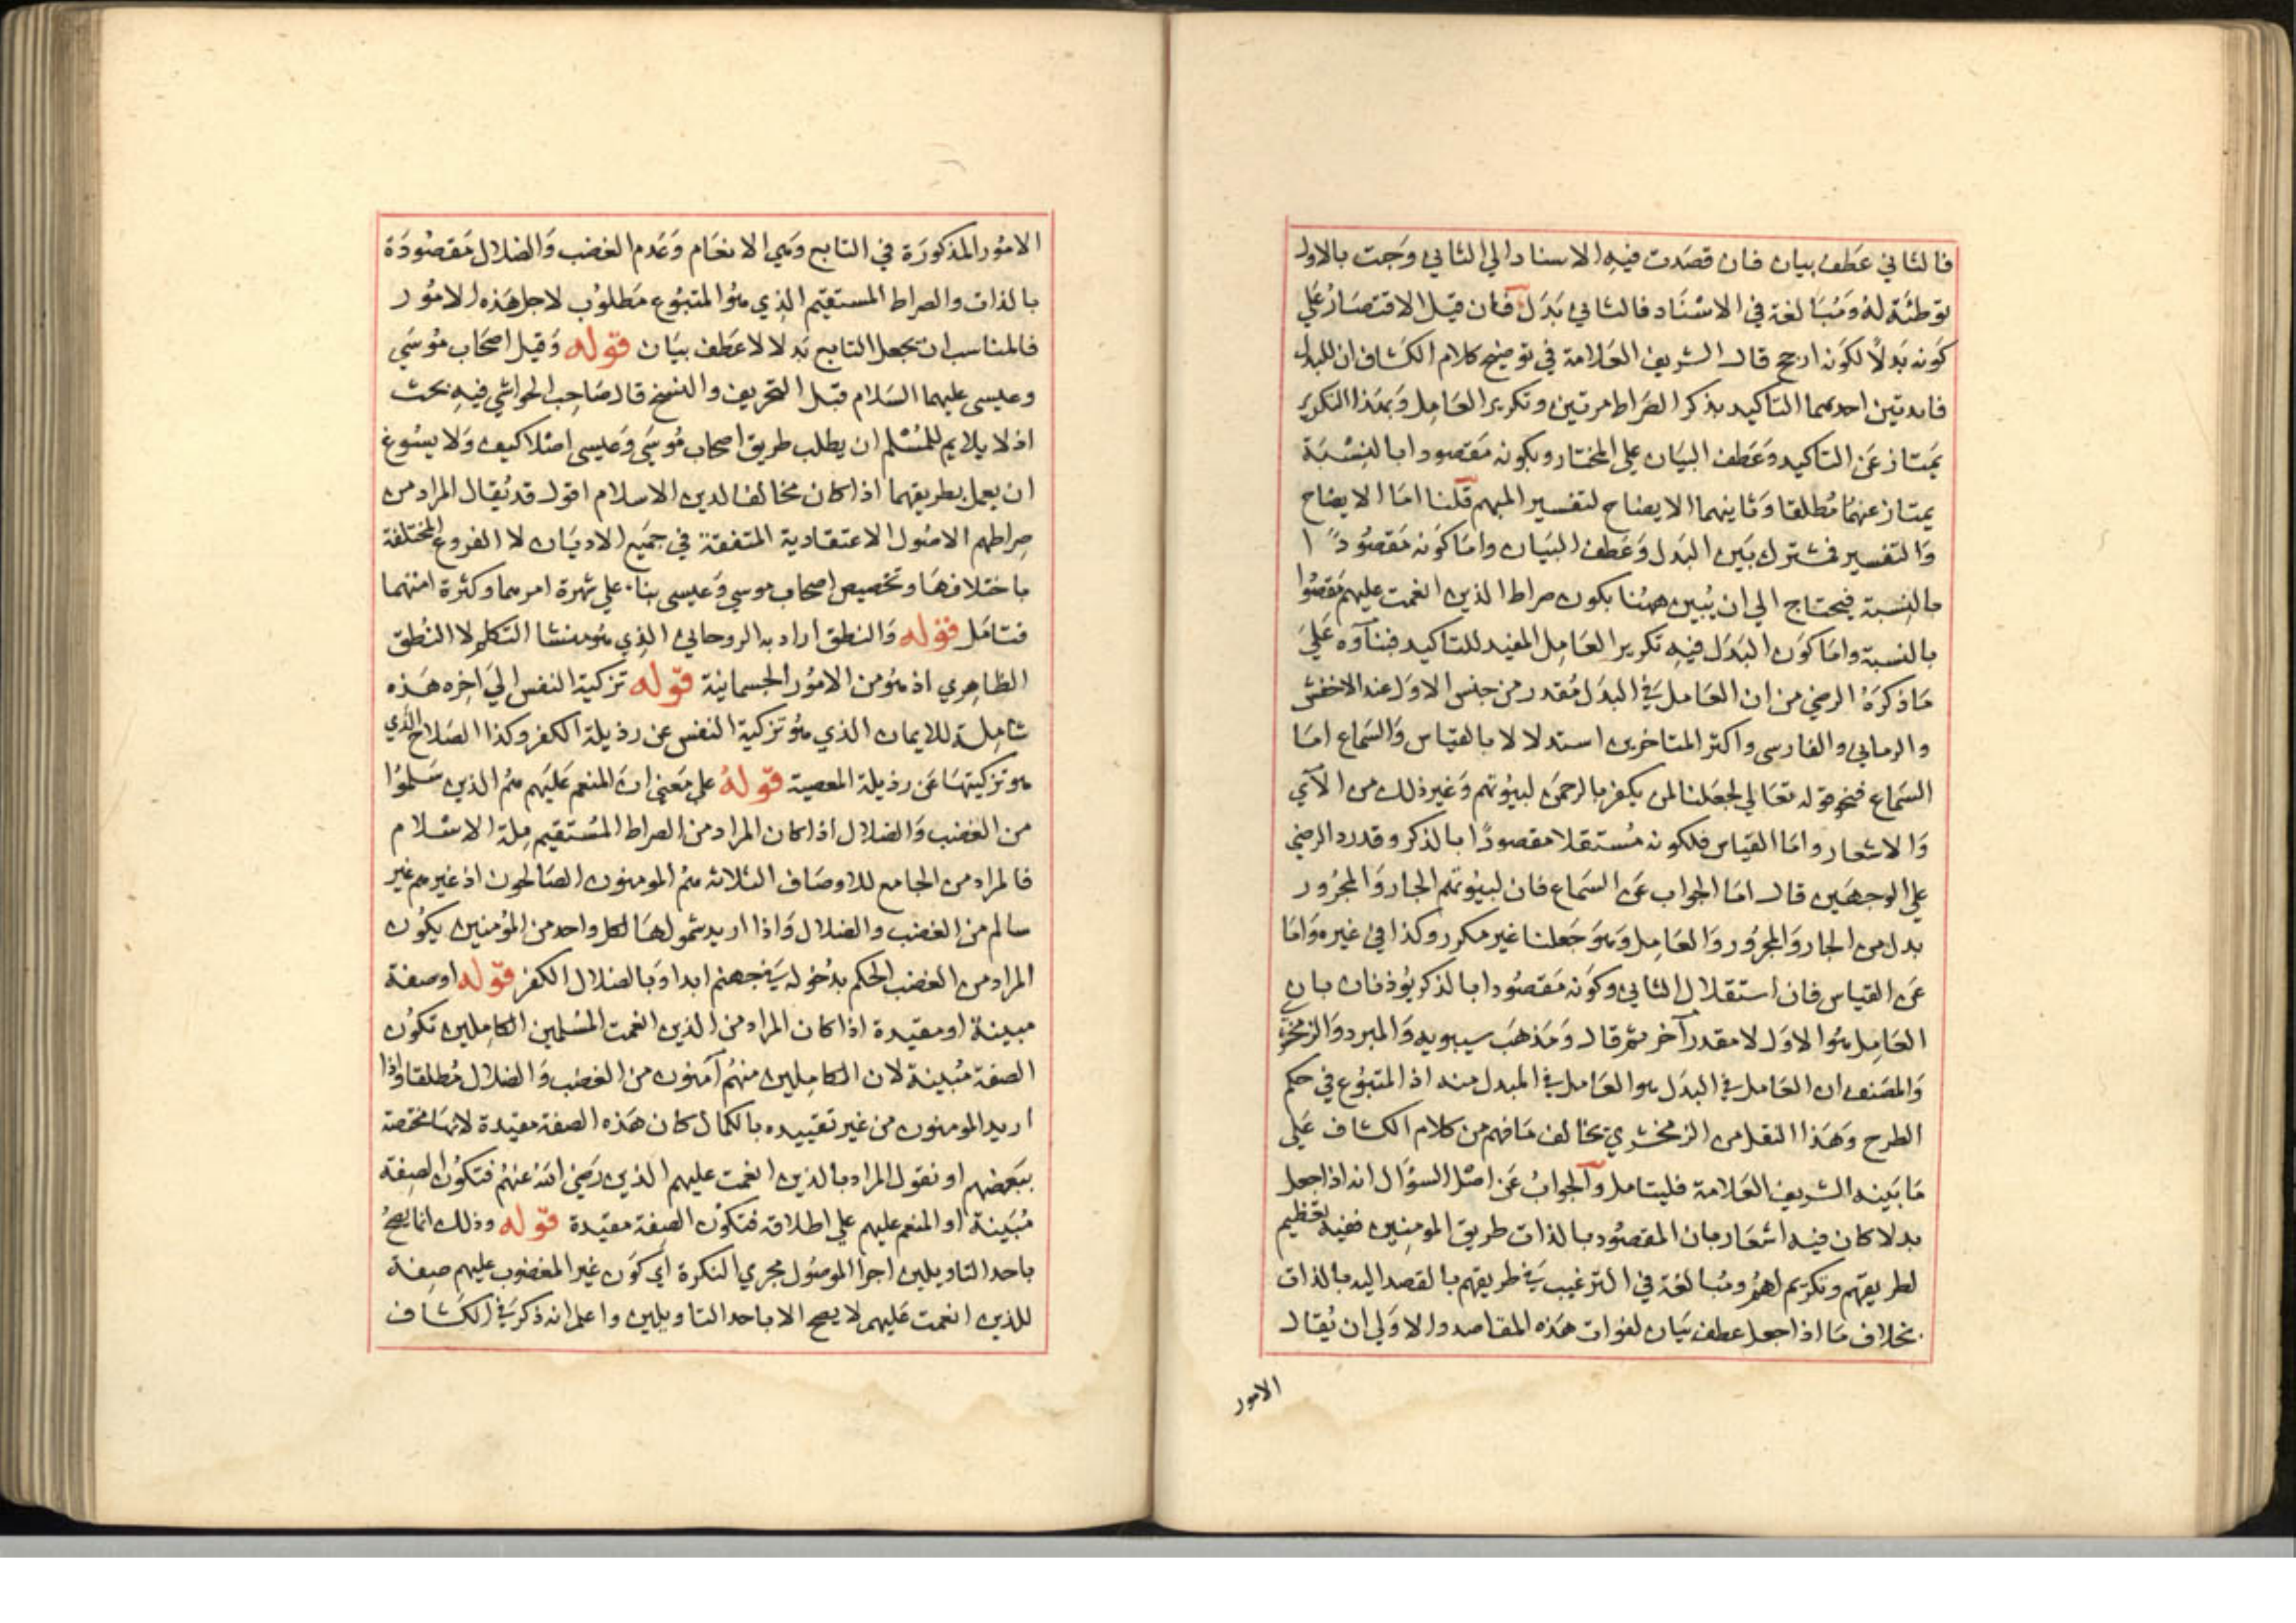 فالثاني عطف بيان فان قصدت فيه الاسناد الي الثاني وجئت بالاول
توطئة له ومبالغة في الاسناد فالثاني بدل فان قيل الاقتصار علي
كونه بدلا لكونه ارجح قال الشريف العلامة في توضيح كلام الكشاف ان للبدل
فايدتين احدهما التاكيد بذكر الصراط مرتين وتكرير العامل وبهذا التكرير
يمتاز عن التاكيد وعطف البيان علي المختار وبكونه مقصودا بالنسبة
يمتاز عنهما مطلقا وثانيهما الايضاح لتفسير المبهم قلنا اما الايضاح
والتفسير فمشترك بين البدل وعطف البيان واما كونه مقصودا
بالنسبة فيحتاج الي ان يبين ههنا بكون صراط الذين انعمت عليهم مقصودا
بالنسبة واما كون البدل فيه تكرير العامل المفيد للتاكيد فبناوه علي
ما ذكره الرضي من ان العامل في البدل مقدر من جنس الاول عند الاخفش
والرماني والفارسي واكثر المتاخرين استدلالا بالقياس والسماع اما
السماع فنحو قوله تعالي لجعلنا لمن يكفر بالرحمن لبيوتهم وغير ذلك من الآي
والاشعار واما القياس فلكونه مستقلا مقصودا بالذكر وقد رد الرضي
علي الوجهين قال اما الجواب عن السماع فان لبيوتهم الجار والمجرور
بدل من الجار والمجرور والعامل وهو جعلنا غير مكرر وكذا في غيره واما
عن القياس فان استقلال الثاني وكونه مقصودا بالذكر يوذنان بان
العامل هو الاول لا مقدر آخر ثم قال ومذهب سيبويه والمبرد والزمخشري
والمصنف ان العامل في البدل هو العامل في المبدل منه اذ المتبوع في حكم
الطرح وهذا النقل من الزمخشري يخالف ما فهم من كلام الكشاف علي
ما بينه الشريف العلامة فليتامل والجواب عن اصل السؤال انه اذا جعل
بدلا كان فيه اشعار بان المقصود بالذات طريق المومنين ففيه تعظيم
لطريقهم وتكريم لهم ومبالغة في الترغيب في طريقهم بالقصد اليه بالذات
بخلاف ما اذا جعل عطف بيان لفوات هذه المقاصد والاولي ان يقال
الامور
الامور المذكورة في التابع وهي الانعام وعدم الغضب والضلال مقصودة
بالذات والصراط المستقيم الذي هو المتبوع مطلوب لاجل هذه الامور
فالمناسب ان يجعل التابع بدلا لا عطف بيان قوله وقيل اصحاب موسي
وعيسي عليهما السلام قبل التحريف والنسخ قال صاحب الحواشي فيه بحث
اذ لا يلايم للمسلم ان يطلب طريق اصحاب موسي وعيسي اصلا كيف ولا يسوغ
ان يعمل بطريقهما اذا كان مخالفا لدين الاسلام اقول قد يقال المراد من
صراطهم الاصول الاعتقادية المتفقة في جميع الاديان لا الفروع المختلفة
باختلافها وتخصيص اصحاب موسي وعيسي بناء علي شهرة امرهما وكثرة امتهما
فتامل قوله والنطق اراد به الروحاني الذي هو منشا التكلم لا النطق
الظاهري اذ هو من الامور الجسمانية قوله تزكية النفس الي اخره هذه
شاملة للايمان الذي هو تزكية النفس عن رذيلة الكفر وكذا الصلاح الذي
هو تزكيتها عن رذيلة المعصية قوله علي معني ان المنعم عليهم هم الذين سلموا
من الغضب والضلال اذا كان المراد من الصراط المستقيم ملة الاسلام
فالمراد من الجامع للاوصاف الثلاثة هم المومنون الصالحون اذ غيرهم غير
سالم من الغضب والضلال واذا اريد شمولها لكل واحد من المؤمنين يكون
المراد من الغضب الحكم بدخوله في جهنم ابدا وبالضلال الكفر قوله او صفة
مبينة او مقيدة اذا كان المراد من الذين انعمت المسلمين الكاملين تكون
الصفة مبينة لان الكاملين منهم آمنون من الغضب والضلال مطلقا واذا
اريد المومنون من غير تقييده بالكمال كان هذه الصفة مقيدة لانها مختصة
ببعضهم او نقول المراد بالذين انعمت عليهم الذين رضي الله عنهم فتكون الصفة
مبينة او المنعم عليهم علي اطلاقه فتكون الصفة مقيدة قوله وذلك انما يصح
باحد التاويلين اجرا الموصول مجري النكرة اي كون غير المغضوب عليهم صفة
للذين انعمت عليهم لا يصح الا باحد التاويلين واعلم انه ذكر في الكشاف